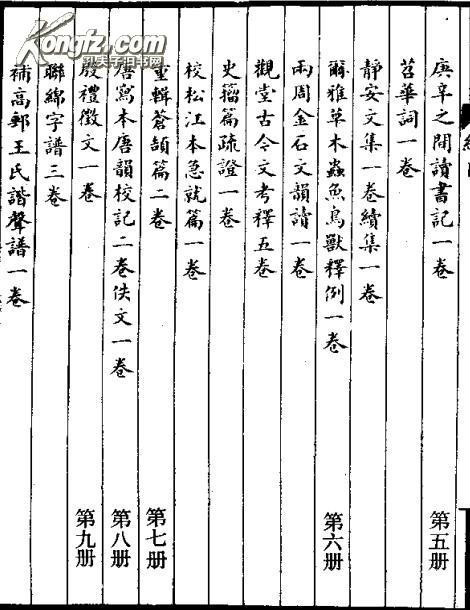 庚辛之間讀書記一卷 第五册
苕華詞一卷
靜安文集一卷續集一卷
爾雅草木蟲魚鳥獸釋例一卷 第六册
兩周金石文韻讀一卷
觀堂古今文考釋五卷
史籀篇疏證一卷
校松江本急就篇一卷
重輯蒼頡篇二卷 第七册
唐寫本唐韻校記二卷佚文一卷 第八册
殷禮徵文一卷 第九册
聯綿字譜三卷
補高郵王氏諧聲譜一卷
Kongfz.com
孔夫子旧书网